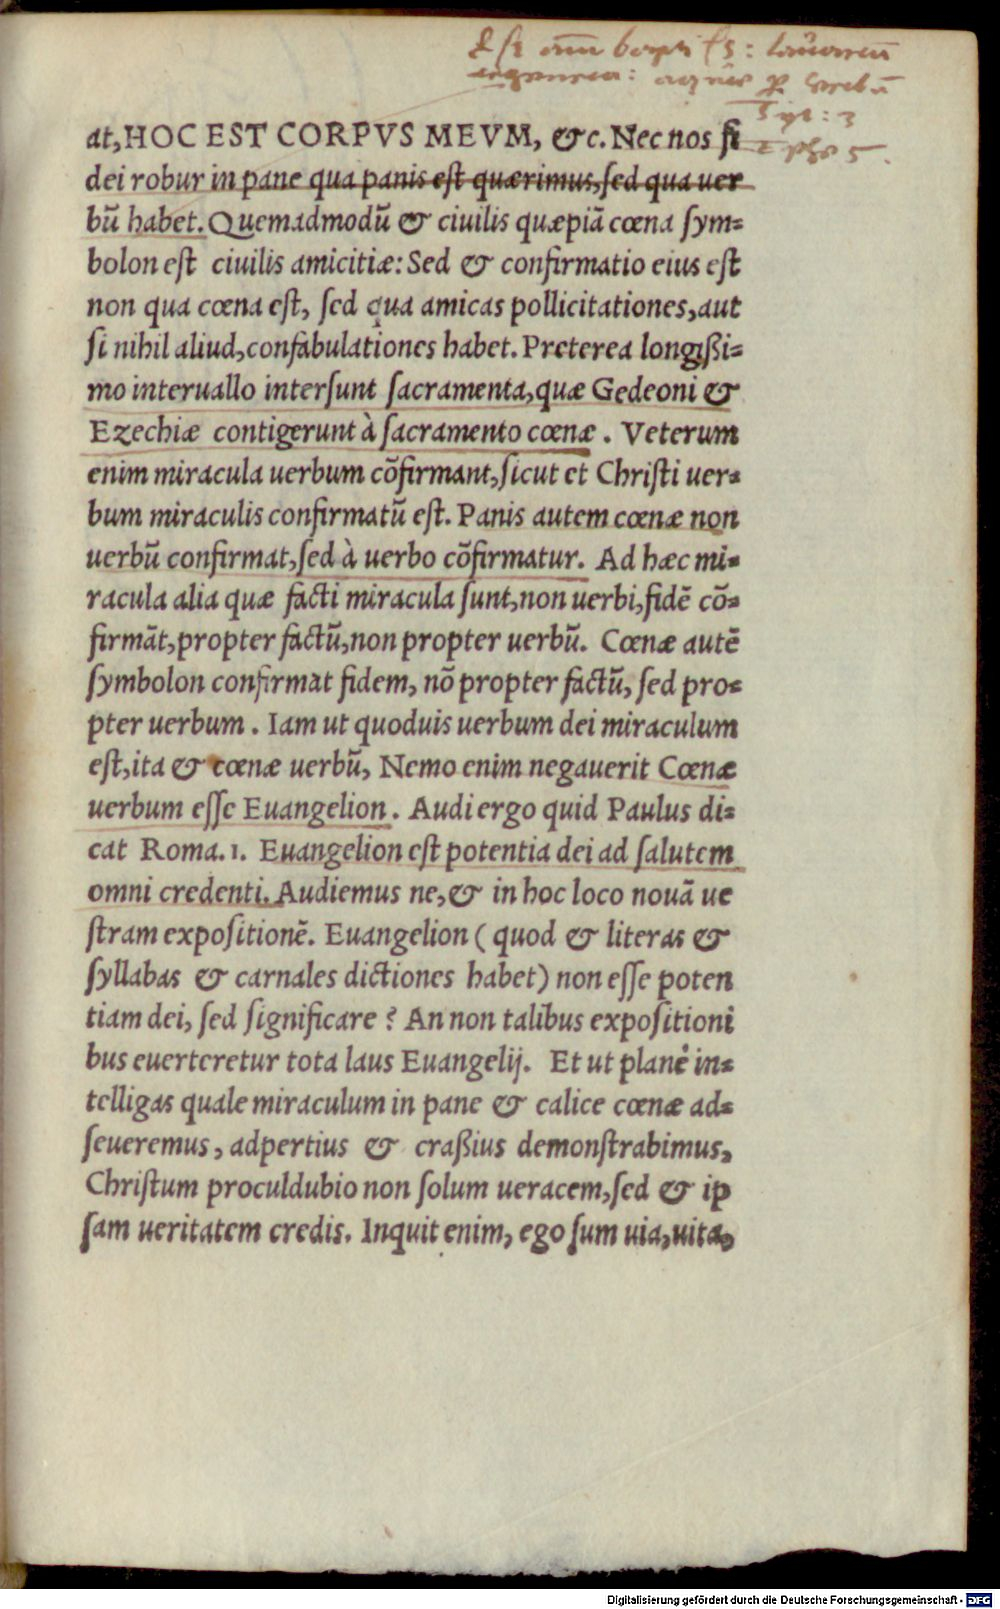 at, HOC EST CORPVS MEVM, &c. Nec nos fi
dei robur in pane qua panis est quærimus, sed qua uer
bũ habet. Quemadmodũ & ciuilis quæpiã cœna sym=
bolon est ciuilis amicitiæ: Sed & confirmatio eius est
non qua cœna est, sed qua amicas pollicitationes, aut
si nihil aliud, confabulationes habet. Preterea longißi=
mo interuallo intersunt sacramenta, quæ Gedeoni &
Ezechiæ contigerunt à sacramento cœnæ. Veterum
enim miracula uerbum cõfirmant, sicut et Christi uer=
bum miraculis confirmatũ est. Panis autem cœnæ non
uerbũ confirmat, sed à uerbo cõfirmatur. Ad hæc mi=
racula alia quæ facti miracula sunt, non uerbi, fidẽ cõ=
firmãt, propter factũ, non propter uerbũ. Cœnæ autẽ
symbolon confirmat fidem, nõ propter factũ, sed pro=
pter uerbum. Iam ut quoduis uerbum dei miraculum
est, ita & cœnæ uerbũ, Nemo enim negauerit Cœnæ
uerbum esse Euangelion. Audi ergo quid Paulus di=
cat Roma. 1. Euangelion est potentia dei ad salutem
omni credenti. Audiemus ne, & in hoc loco nouã ue
stram expositionẽ. Euangelion ( quod & literas &
syllabas & carnales dictiones habet) non esse poten
tiam dei, sed significare? An non talibus expositioni
bus euerteretur tota laus Euangelij. Et ut planè in=
telligas quale miraculum in pane & calice cœnæ ad=
seueremus, adpertius & craßius demonstrabimus,
Christum proculdubio non solum ueracem, sed & ip
sam ueritatem credis. Inquit enim, ego sum uia, uita,
Digitalisierung gefördert durch die Deutsche Forschungsgemeinschaft - DFG